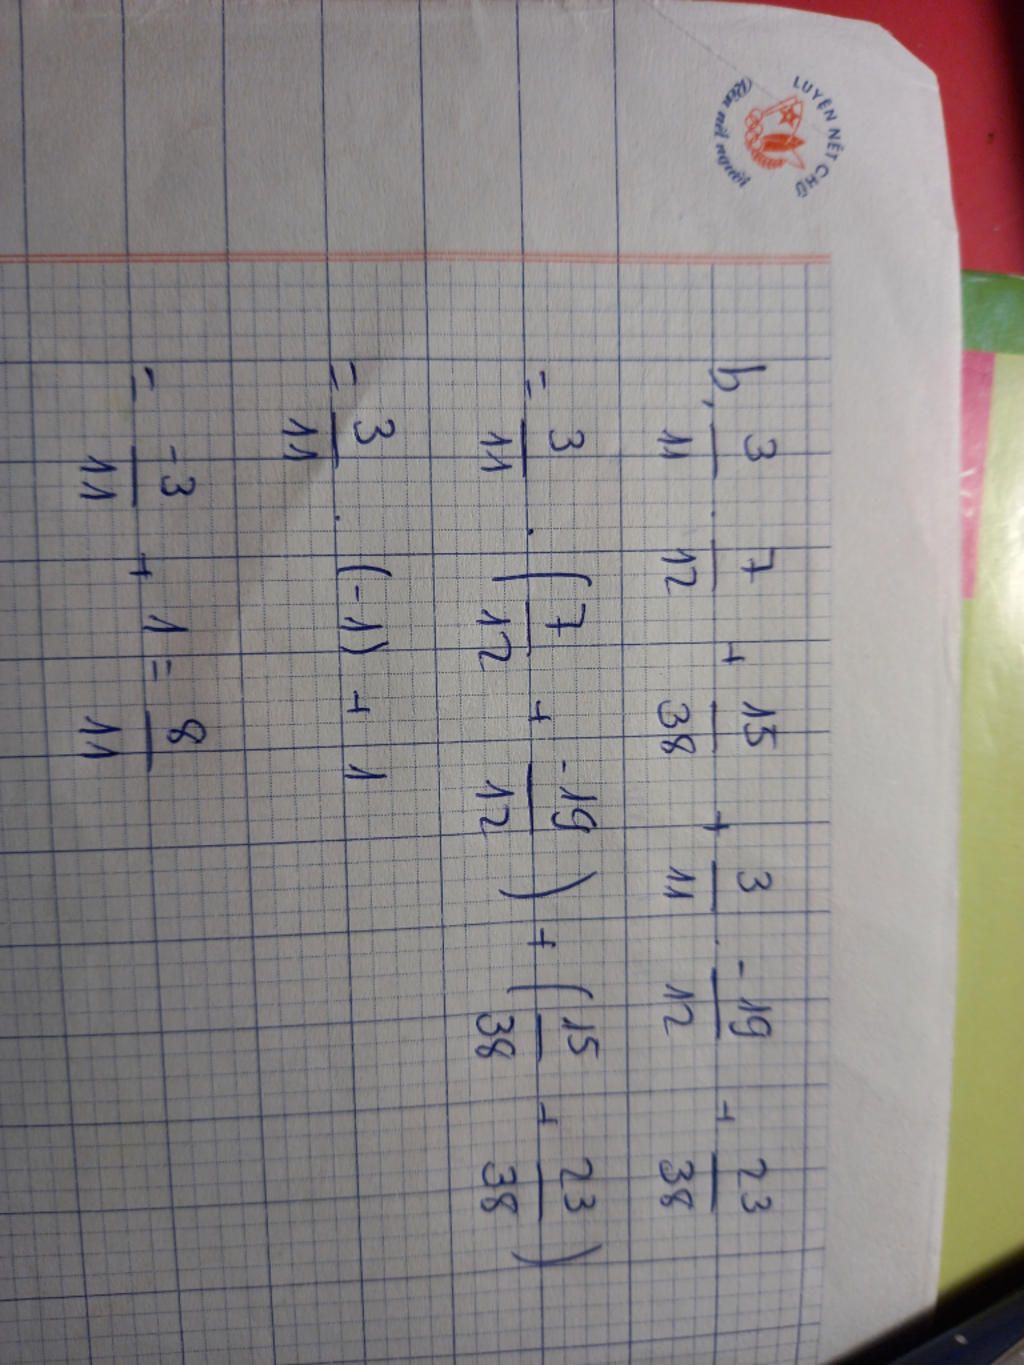 LUYỆN NÉT CHỮ
Rèn nết người
b, 3/11 . 7/12 + 15/38 + 3/11 . -19/12 + 23/38
= 3/11 . (7/12 + -19/12) + (15/38 + 23/38)
= 3/11 . (-1) + 1
= -3/11 + 1 = 8/11